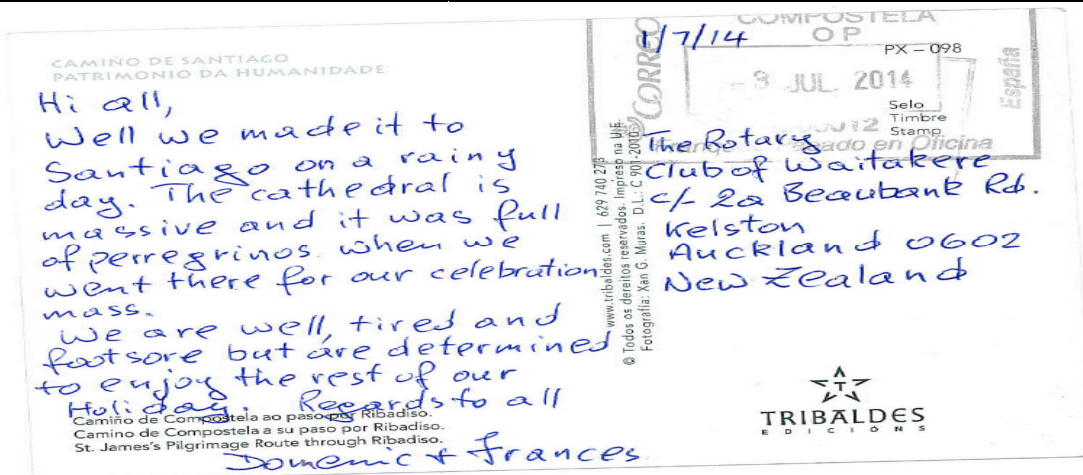 CAMIÑO DE SANTIAGO
PATRIMONIO DA HUMANIDADE
Hi all,
Well we made it to
Santiago on a rainy
day. The cathedral is
massive and it was full
of perregrinos when we
went there for our celebration
mass.
We are well, tired and
footsore but are determined
to enjoy the rest of our
Holiday. Regards to all
Domenic + Frances
Camiño de Compostela ao paso por Ribadiso.
Camino de Compostela a su paso por Ribadiso.
St. James's Pilgrimage Route through Ribadiso.
www.tribaldes.com | 629 740 273
© Todos os dereitos reservados. Impreso na U.E.
Fotografía: Xan G. Muras. D.L.: C 901-2010
1/7/14
COMPOSTELA
O P
PX - 098
CORREO
- 3 JUL. 2014
España
Selo
Timbre
Stamp
en Oficina
The Rotary
Club of Waitakere
c/- 2a Beaubank Rd.
Kelston
Auckland 0602
New Zealand
TRIBALDES
EDICIÓNS